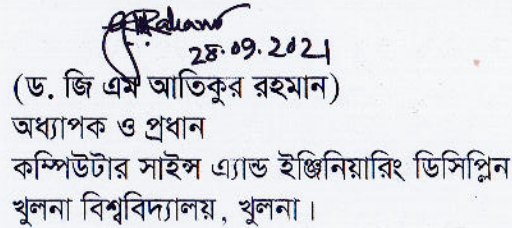 28.09.2021
(ড. জি এম আতিকুর রহমান)
অধ্যাপক ও প্রধান
কম্পিউটার সাইন্স এ্যান্ড ইঞ্জিনিয়ারিং ডিসিপ্লিন
খুলনা বিশ্ববিদ্যালয়, খুলনা।